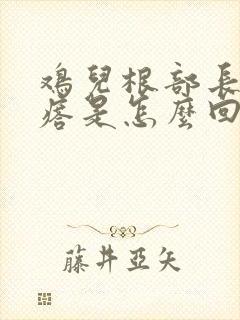 鸡兒根部長
痞是怎麼回
藤井亞矢